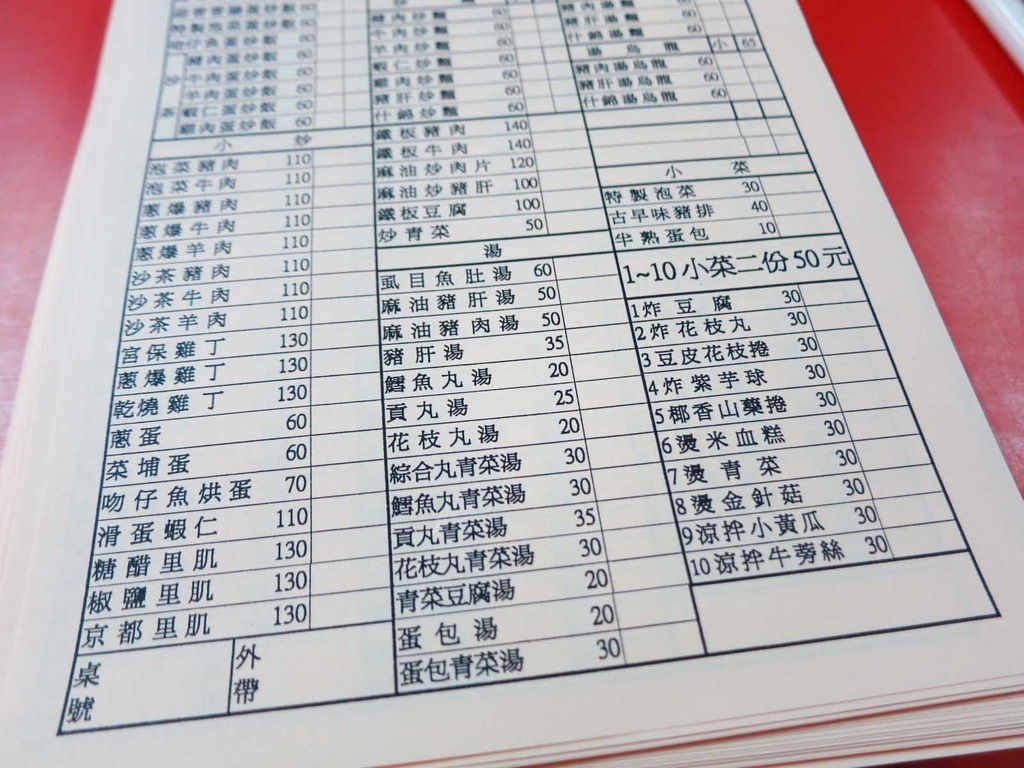 蛋炒飯 60
仔魚蛋炒飯 60
炒
豬肉蛋炒飯 60
牛肉蛋炒飯 60
羊肉蛋炒飯 60
蝦仁蛋炒飯 60
雞肉蛋炒飯 60
小炒
泡菜豬肉 110
泡菜牛肉 110
蔥爆豬肉 110
蔥爆牛肉 110
蔥爆羊肉 110
沙茶豬肉 110
沙茶牛肉 110
沙茶羊肉 110
宮保雞丁 130
蔥爆雞丁 130
乾燒雞丁 130
蔥蛋 60
菜埔蛋 60
吻仔魚烘蛋 70
滑蛋蝦仁 110
糖醋里肌 130
椒鹽里肌 130
京都里肌 130
桌號
外帶
豬肉炒麵 60
牛肉炒麵 60
羊肉炒麵 60
蝦仁炒麵 60
雞肉炒麵 60
豬肝炒麵 60
什錦炒麵 60
鐵板豬肉 140
鐵板牛肉 140
麻油炒肉片 120
麻油炒豬肝 100
鐵板豆腐 100
炒青菜 50
湯
虱目魚肚湯 60
麻油豬肝湯 50
麻油豬肉湯 50
豬肝湯 35
鱈魚丸湯 20
貢丸湯 25
花枝丸湯 20
綜合丸青菜湯 30
鱈魚丸青菜湯 30
貢丸青菜湯 35
花枝丸青菜湯 30
青菜豆腐湯 20
蛋包湯 20
蛋包青菜湯 30
豬肉湯麵 60
豬肝湯麵 60
什錦湯麵 60
湯烏龍 小 65
豬肉湯烏龍 60
豬肝湯烏龍 60
什錦湯烏龍 60
小菜
特製泡菜 30
古早味豬排 40
半熟蛋包 10
1~10小菜二份50元
1炸豆腐 30
2炸花枝丸 30
3豆皮花枝捲 30
4炸紫芋球 30
5椰香山藥捲 30
6燙米血糕 30
7燙青菜 30
8燙金針菇 30
9涼拌小黃瓜 30
10涼拌牛蒡絲 30